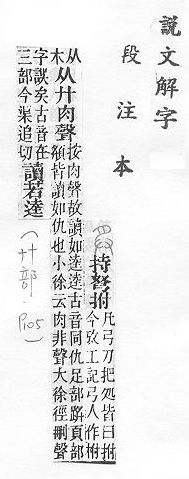 說文解字
段注本
持弩拊
凡弓刀把処皆曰拊
今攷工記弓人作柎
从
木
从廾肉聲
按肉聲故讀如逵逵古音同仇足部頁部
頯皆讀如仇也小徐云肉非聲大徐徑刪聲
字誤矣古音在
三部今渠追切
讀若逵
(廾部.P105)